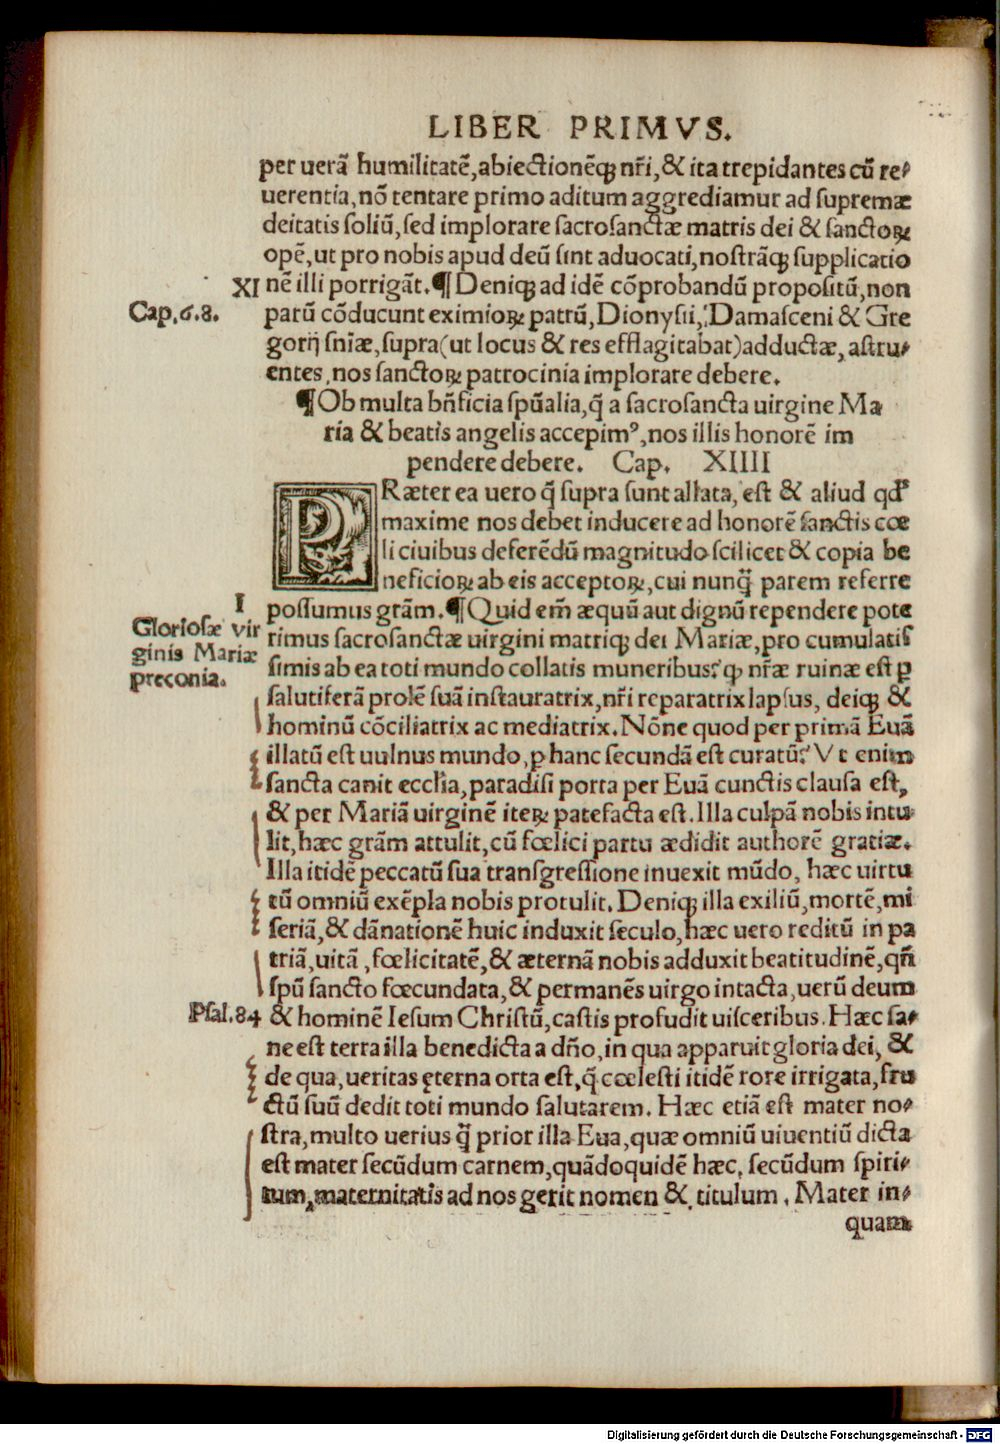 LIBER PRIMVS.
per uerã humilitatẽ, abiectionẽq; nr̃i, & ita trepidantes cũ re-
uerentia, nõ tentare primo aditum aggrediamur ad supremæ
deitatis soliũ, sed implorare sacrosanctæ matris dei & sanctoꝝ
opẽ, ut pro nobis apud deũ sint aduocati, nostrãq; supplicatio
XI
nẽ illi porrigãt. ¶ Deniq; ad idẽ cõprobandũ propositũ, non
Cap. 6. 8.
parũ cõducunt eximioꝝ patrũ, Dionysii, Damasceni & Gre
gorij sñiæ, supra (ut locus & res efflagitabat) adductæ, astru-
entes, nos sanctoꝝ patrocinia implorare debere.
¶ Ob multa bñficia spũalia, q̃ a sacrosancta uirgine Ma
ria & beatis angelis accepimꝰ, nos illis honorẽ im
pendere debere. Cap. XIIII
PRæter ea uero q̃ supra sunt allata, est & aliud qđ
maxime nos debet inducere ad honorẽ sanctis cœ
li ciuibus deferẽdũ magnitudo scilicet & copia be
neficioꝝ ab eis acceptoꝝ, cui nunq̃ parem referre
I
possumus grãm. ¶ Quid em̃ æquũ aut dignũ rependere pote
Gloriosæ vir
ginis Mariæ
preconia.
rimus sacrosanctæ uirgini matriq; dei Mariæ, pro cumulatis
simis ab ea toti mundo collatis muneribus? q; nr̃æ ruinæ est ꝑ
salutiferã prolẽ suã instauratrix, nr̃i reparatrix lapsus, deiq; &
hominũ cõciliatrix ac mediatrix. Nõne quod per primã Euã
illatũ est uulnus mundo, ꝑ hanc secundã est curatũ? Vt enim
sancta canit ecclia, paradisi porta per Euã cunctis clausa est,
& per Mariã uirginẽ iteꝝ patefacta est. Illa culpã nobis intu-
lit, hæc grãm attulit, cũ fœlici partu ædidit authorẽ gratiæ.
Illa itidẽ peccatũ sua transgressione inuexit mũdo, hæc uirtu
tũ omniũ exẽpla nobis protulit. Deniq; illa exiliũ, mortẽ, mi
seriã, & dãnationẽ huic induxit seculo, hæc uero reditũ in pa
triã, uitã, fœlicitatẽ, & æternã nobis adduxit beatitudinẽ, qñ
spũ sancto fœcundata, & permanẽs uirgo intacta, uerũ deum
Psal. 84
& hominẽ Iesum Christũ, castis profudit uisceribus. Hæc sa-
ne est terra illa benedicta a dño, in qua apparuit gloria dei, &
de qua, ueritas ęterna orta est, q̃ cœlesti itidẽ rore irrigata, fru
ctũ suũ dedit toti mundo salutarem. Hæc etiã est mater no-
stra, multo uerius q̃ prior illa Eua, quæ omniũ uiuentiũ dicta
est mater secũdum carnem, quãdoquidẽ hæc, secũdum spiri-
tum, maternitatis ad nos gerit nomen & titulum. Mater in-
quam
Digitalisierung gefördert durch die Deutsche Forschungsgemeinschaft - DFG